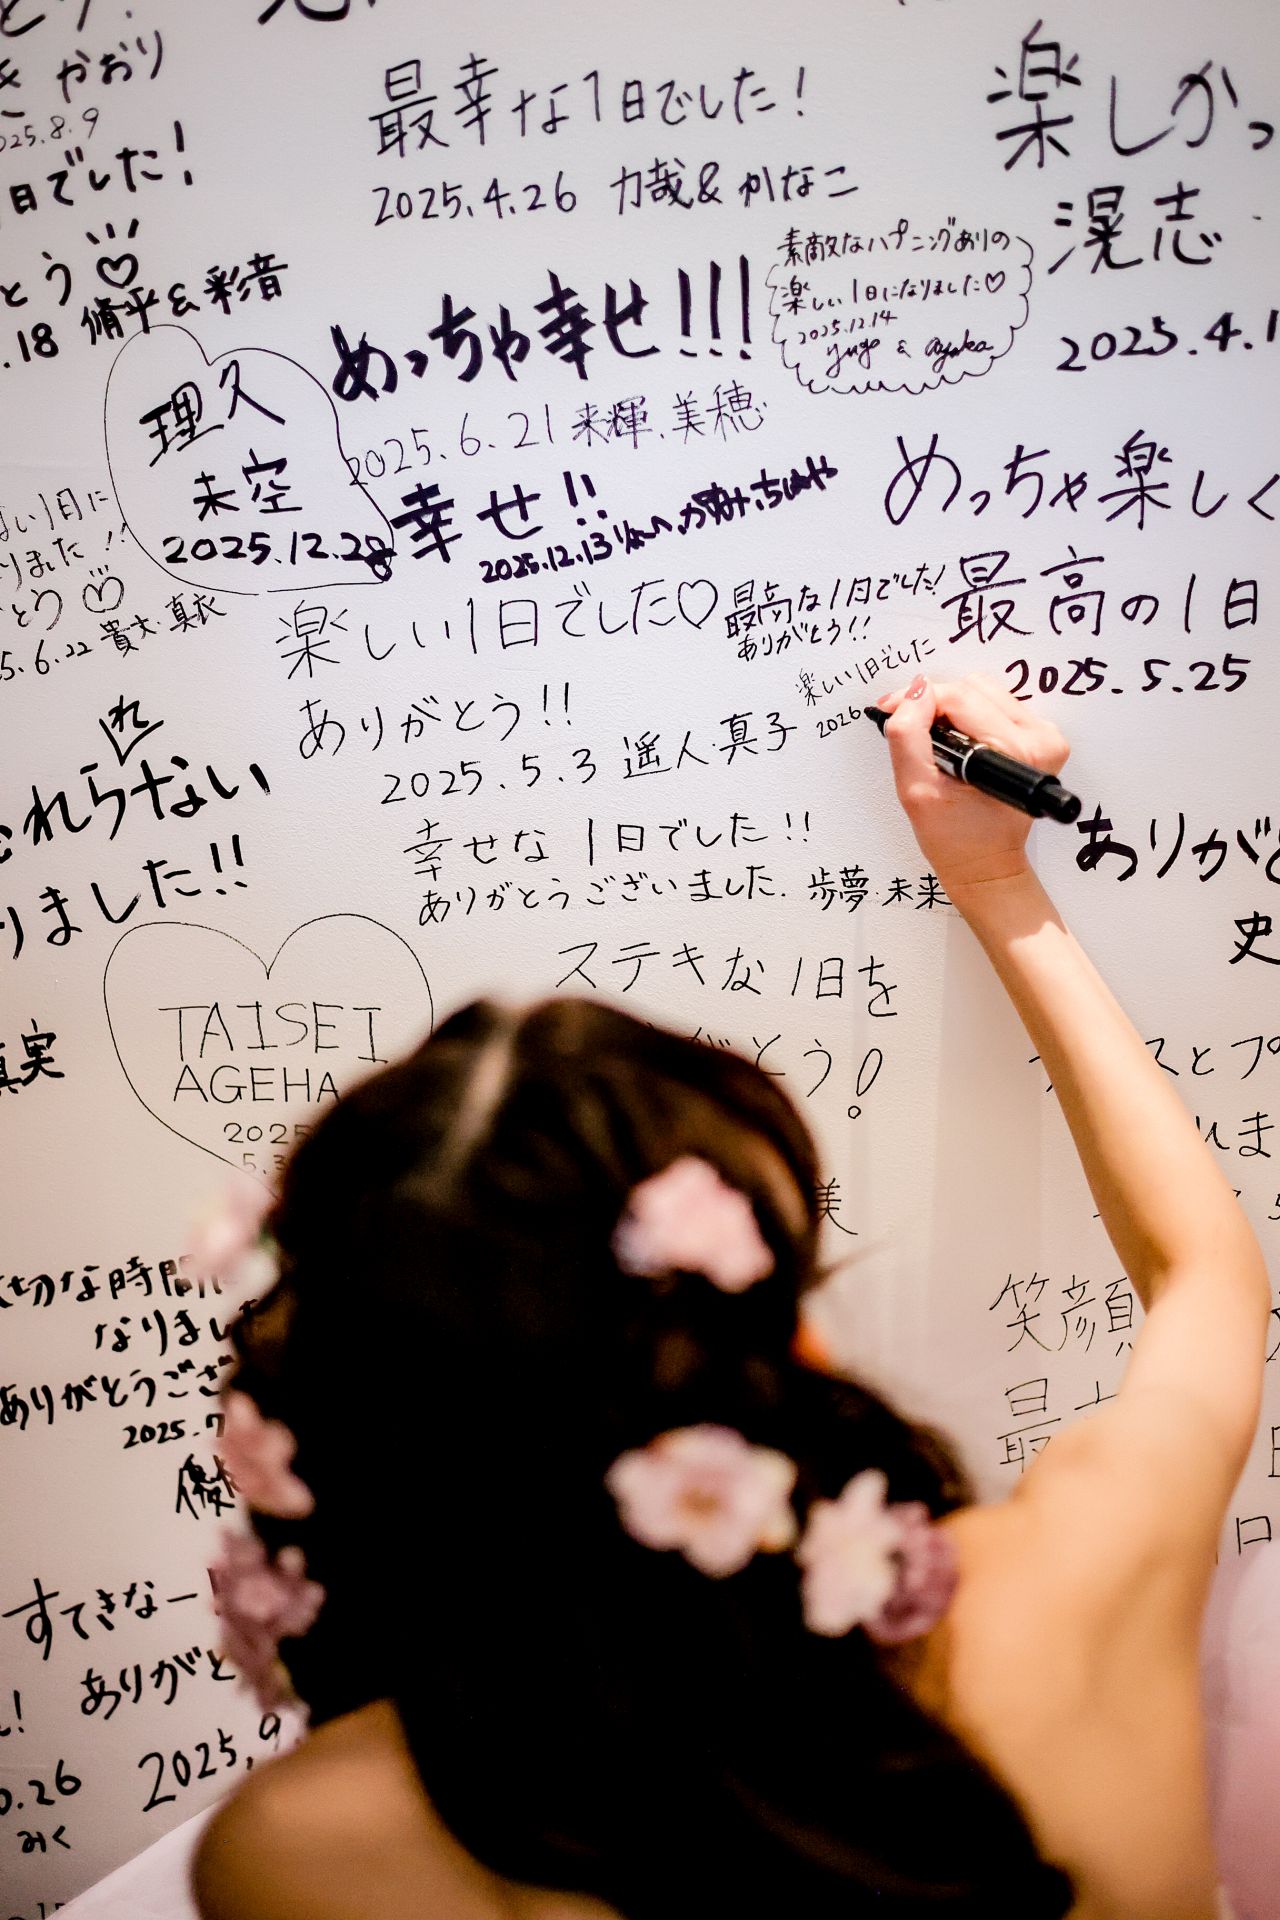 やおり
025.8.9
日でした!
とう♡
.18 脩平&彩音
最幸な1日でした!
2025.4.26 力哉&かなこ
楽しかっ
滉志
2025.4.1
めっちゃ幸せ!!!
2025.6.21 来輝.美穂
素敵なハプニングありの
楽しい1日になりました♡
2025.12.14
yugo & ayaka
理久
未空
2025.12.28
幸せ!!
2025.12.13
めっちゃ楽しく
最高の1日
2025.5.25
い1日に
りました!!
とう
5.6.22 貴文・真衣
楽しい1日でした♡
ありがとう!!
2025.5.3 遥人・真子
最高な1日でした!
ありがとう!!
楽しい1日でした
2026
れ
れらない
りました!!
幸せな1日でした!!
ありがとうございました. 歩夢・未来
ありがと
史
TAISEI
AGEHA
2025
5.3
真実
ステキな1日を
がとう!
美
スとプ
れま
切な時間に
なりました
ありがとうござ
2025.7
笑顔
最
日
すてきな一
ありがと
2025.9.
0.26
みく